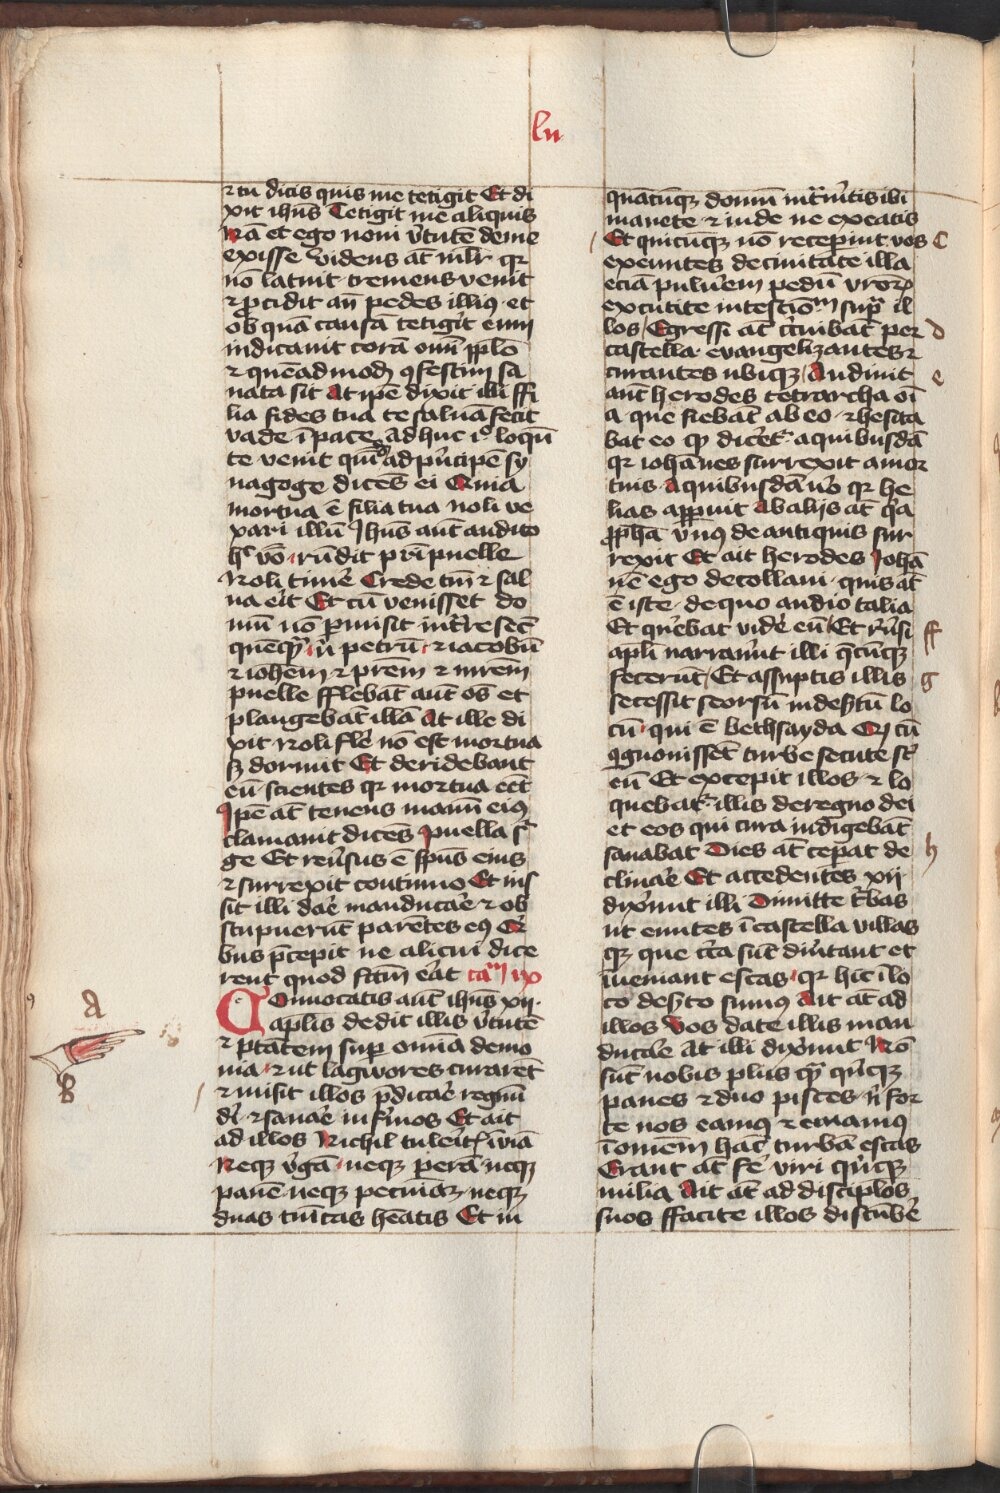 lu
⁊ tu dicis quis me tetigit Et di
xit ihūs Tetigit me aliquis
Nā et ego noui v̄tutē de me
exisse Videns at̄ mlr̄ qr
nō latuit tremens venit
⁊ ꝓcidit an̄ pedes illiꝰ et
ob quā causā tetig̾it eum
indicauit corā omī pplo
⁊ quēadmodꝫ ꝯfestim sa
nata sit At ipē dixit illi ffi
lia fides tua te saluā fecit
vade ī pace Ad huc iᵒ loquē
te venit quidā ad pͥncipē sy
nagoge dicēs ei Quia
mortua ē filia tua noli ve
xari illū Ihūs aut̄ audito
hͦ v̄bo rn̄dit prī puelle
Noli timē Crede tm̄ ⁊ sal
ua erit Et cū venisset do
mū nō ꝑmisit int͛re secū
quēqᷓꝫ n̄ petrū ⁊ iacobū
⁊ iohēm ⁊ prēm ⁊ mrēm
puelle fflebāt aut̄ oēs et
plangebāt illā At ille di
xit Noli flē nō est mortua
sꝫ dormit Et deridebant
eū scientes qr mortua eēt
Ipē at̄ tenens manū eiꝰ
clamauit dicēs puella sͬ
ge Et reu͛sus ē spūs eius
⁊ surrexit continuo Et ius
sit illi dar̄e manducar̄e ⁊ ob
stupuerūt parētes eiꝰ Qͥ
bus p̄cepit ne alicui dice
rent quod fctm̄ erat caᵐ ix
COnuocatis aut̄ ihūs xij
aplīs dedit illis v̄tutē
⁊ ptātem suꝑ omīa demo
nia ⁊ ut lagwores curarēt
⁊ misit illos p̄dicar̄e regnū
dī ⁊ sanar̄e infirmos Et ait
ad illos Nichil tulerītis ī viā
Neqꝫ v̄gā neqꝫ perā neqꝫ
panē neqꝫ pecuniā neqꝫ
duas tunicas hēatis Et in
A
B
quācūqꝫ domū intͣu͛itis ibi
manete ⁊ inde ne exeatis
Et quicūqꝫ nō receperint vos
exeuntes de ciuitate illa
eciā pulu͛em pedū vrorꝝ
excutite in testioᵐ supͣ il
los Egressi at̄ cͥuibāt per
castella euangelizantes ⁊
curantes ubiqꝫ Audiuit
aut̄ herodes tetrarcha oī
a que fiebāt ab eo ⁊ hesita
bat eo qꝫ dicer̄etͬ a quibusdā
qr iohānes surrexit a mor
tuis a quibusdā v̄o qr he
lias apparuit ab alijs at̄ qͣ
ꝓpha vnꝰ de antiquis sur
rexit Et ait herodes Iohā
nē ego decollaui quis at̄
ē iste de quo audio talia
Et querebat videre eū Et ru͛si
apli narrauͬut illi q̄cūqꝫ
fecerūt Et assūptis illis
secessit seorsū in desͬtū lo
cū qui ē bethsayda Qꝫ cū
ꝯgnouissēt turbe secute sͭ
eū Et excepit illos ⁊ lo
quebatͬ illis de regno dei
et eos qui cura indigebāt
sanabat Dies at̄ cep̄at de
clinar̄e Et accedentes xij
dix͛unt illi Dimitte t͛bas
ut euntes ī castella villas
qꝫ que cͥca sūt diu͛tant et
īueniant escas qr hic ī lo
co desͬto sumꝰ Ait at̄ ad
illos Vos date illis man
ducar̄e At illi dix͛unt Nō
sūt nobis plus qᷓꝫ qͥnqꝫ
panes ⁊ duo pisces n̄ for
te nos eamꝰ ⁊ emamꝰ
ī omēm hāc turbā escas
Erant at̄ ferē viri qͥnqꝫ
milia Ait at̄ ad discip̄los
suos ffacite illos discūbē
C
d
e
ff
g
h